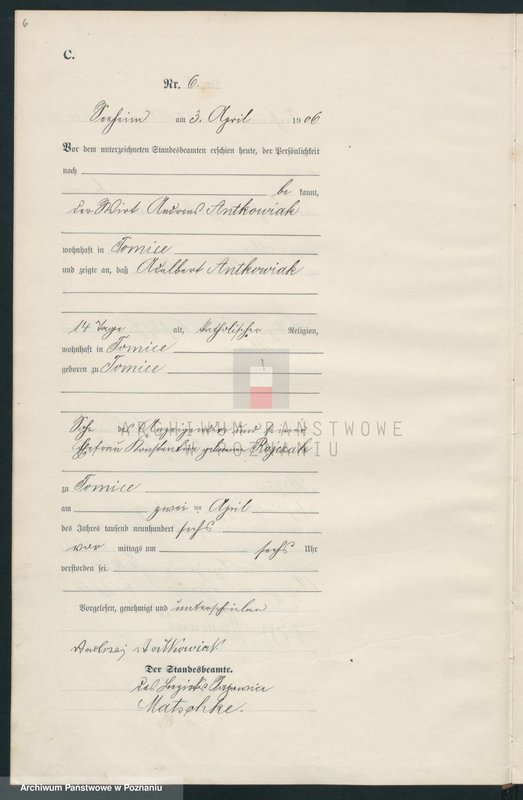 6
C.
Nr. 6.
Seeheim am 3. April 1906
Vor dem unterzeichneten Standesbeamten erschien heute, der Persönlichkeit
nach
be kannt,
der Wirt Andreas Antkowiak
wohnhaft in Tomice
und zeigte an, daß Adelbert Antkowiak
14 Tage alt, katholischer Religion,
wohnhaft in Tomice
geboren zu Tomice
ARCHIWUM PAŃSTWOWE
W POZNANIU
Sohn des Anzeigenden und seiner
Ehefrau Konstantia geborene
zu Tomice
am zwei ten April
des Jahres tausend neunhundert sechs
vor mittags um sechs Uhr
verstorben sei.
Vorgelesen, genehmigt und unterschrieben
Andrzej Antkowiak
Der Standesbeamte.
des Bezirks
Matschke.
Archiwum Państwowe w Poznaniu